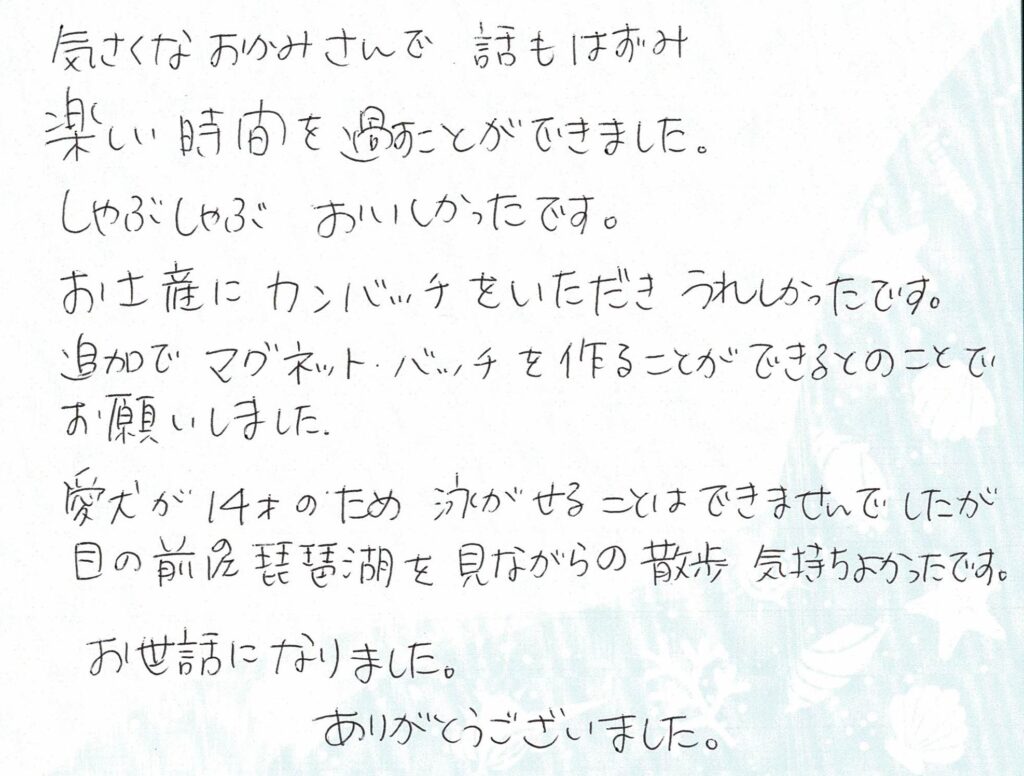 気さくな おかみさんで 話もはずみ
楽しい 時間を過すことができました。
しゃぶしゃぶ おいしかったです。
お土産に カンバッチをいただき うれしかったです。
追加で マグネット・バッチを作ることができるとのことで
お願いしました.
愛犬が 14才のため 泳がせることはできませんでしたが
目の前の琵琶湖を 見ながらの 散歩 気持ちよかったです。
お世話になりました。
ありがとうございました。